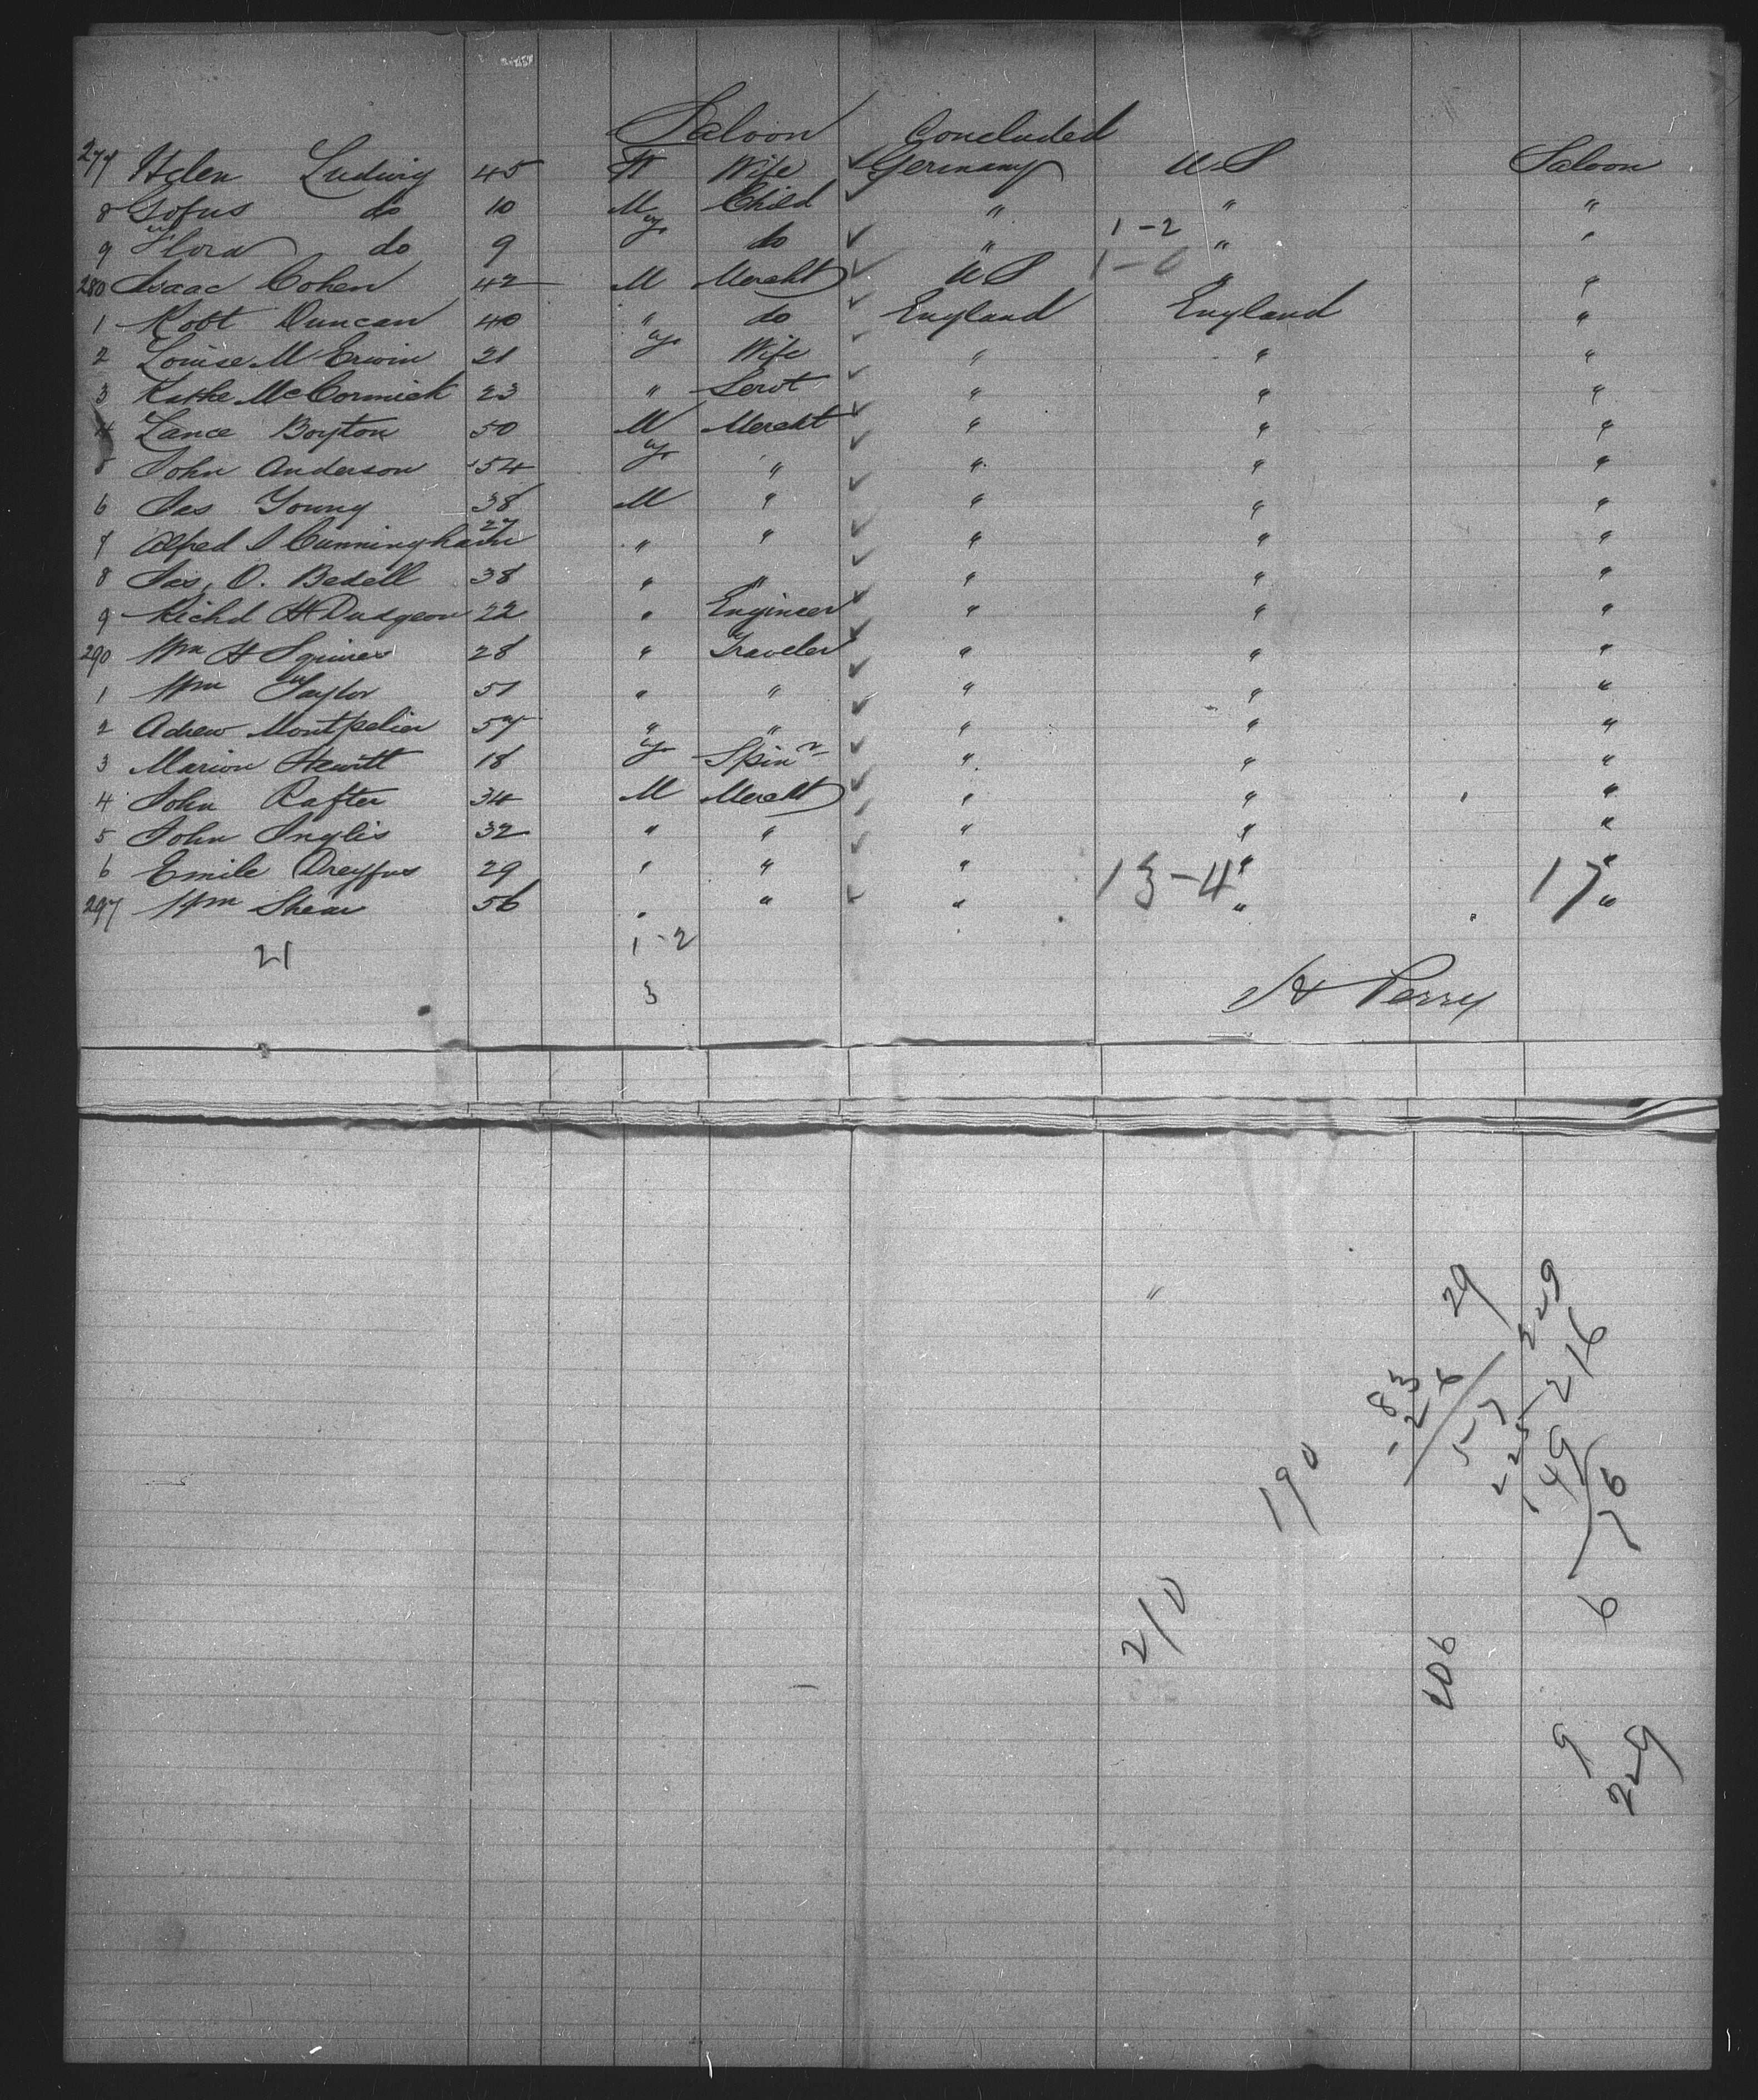 Saloon Concluded
277 Helen Ludwig 45 F Wife ✓ Germany U S Saloon
8 Gofus do 10 M Child ✓ " " "
9 Flora do 9 F do ✓ " 1-2 " "
280 Isaac Cohen 42 M Mercht ✓ U S 1-0 " "
1 Robt Duncan 40 " do ✓ England England "
2 Louise M Erwin 21 F Wife ✓ " " "
3 Kathe McCormick 23 " Servt ✓ " " "
4 Lance Boyton 50 M Mercht ✓ " " "
5 John Anderson 54 F " ✓ " " "
6 Jas Young 38 M " ✓ " " "
7 Alfred J Cunningham 27 " " ✓ " " "
8 Jas. O. Bedell 38 " " ✓ " " "
9 Richd H Dudgeon 22 " Engineer ✓ " " "
290 Wm H Squires 28 " Traveler ✓ " " "
1 Wm Taylor 51 " " ✓ " " "
2 Adrew Montpelier 57 " " ✓ " " "
3 Marion Hewitt 18 F Spinr ✓ " " "
4 John Rafter 34 M Mercht ✓ " " "
5 John Inglis 32 " " ✓ " " "
6 Emile Dreyfus 29 " " ✓ " 13-4 " 17 "
297 Wm Shear 56 " " ✓ " " "
21 1-2
3
H Perry
29
229
216
83
26
57
225
149
76
190
6
210
206
9
229